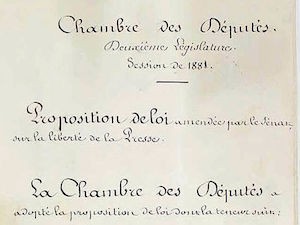 Chambre des Députés.
Deuxième Législature.
Session de 1881.
Proposition de loi amendée par le Sénat,
sur la liberté de la Presse.
La Chambre des Députés a
adopté la proposition de loi dont la teneur suit: